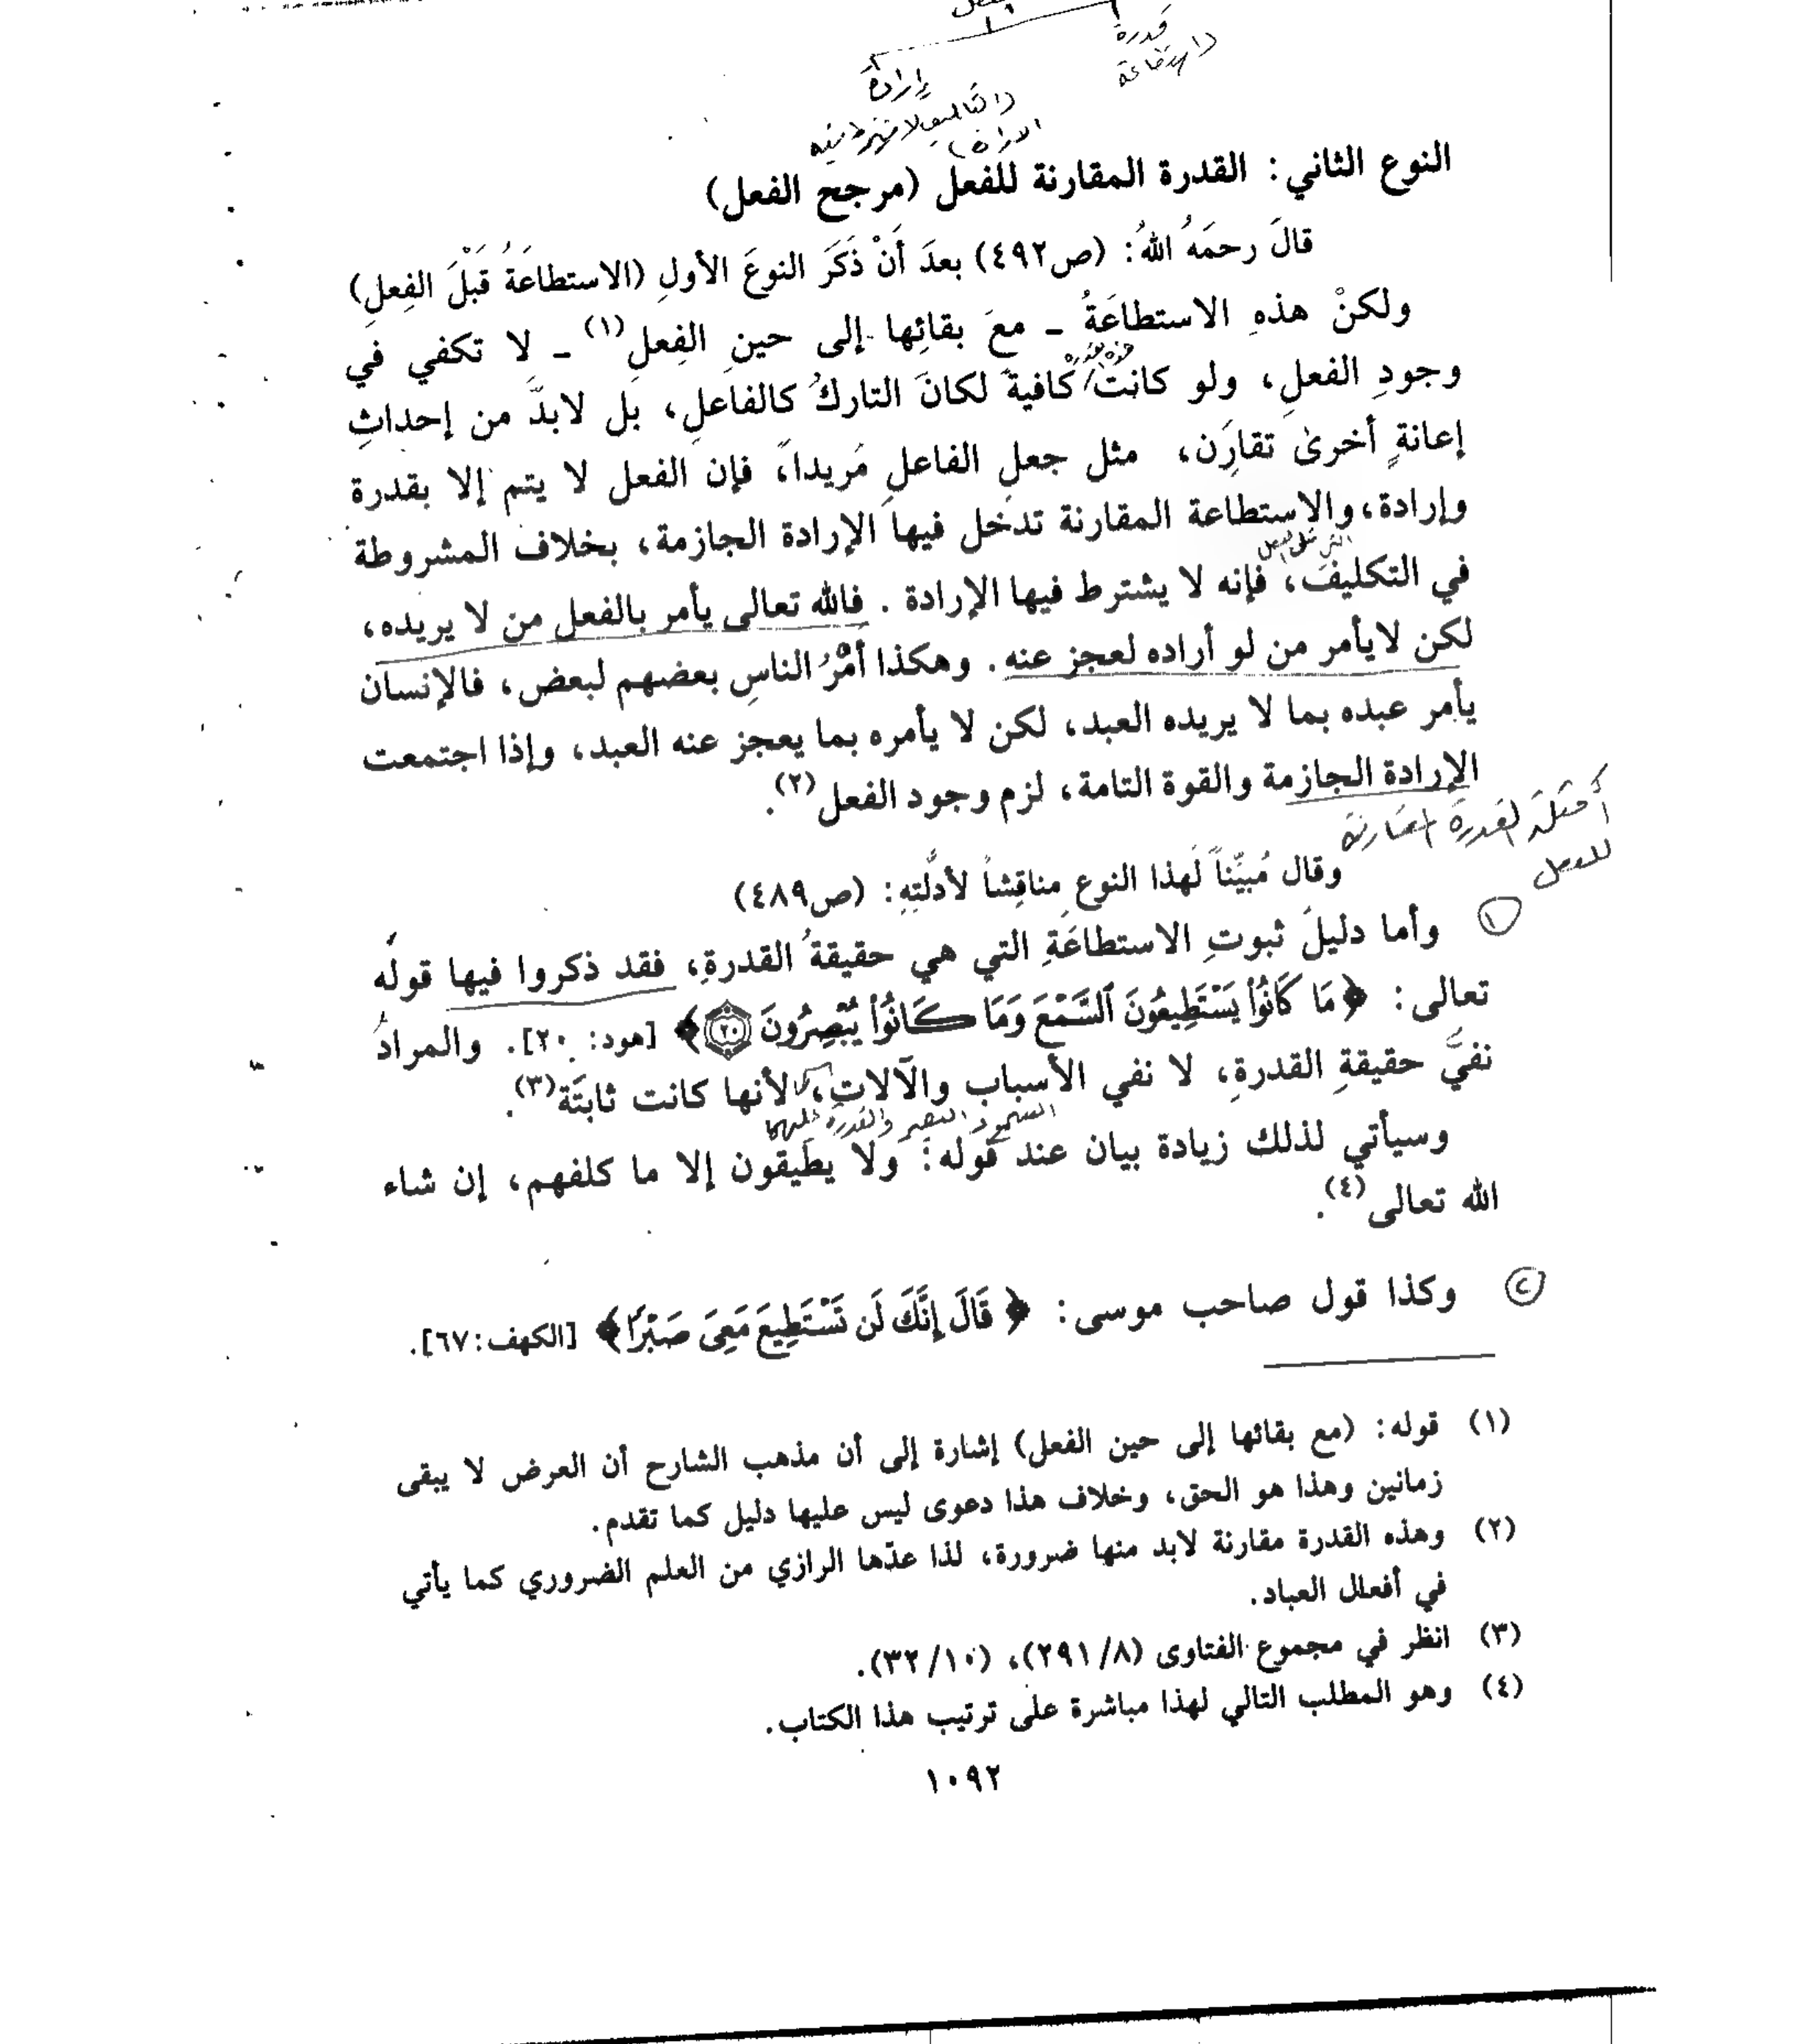 إرادة
قدرة
النوع الثاني: القدرة المقارنة للفعل (مرجح الفعل)
قالَ رحمَهُ اللهُ: (ص٤٩٢) بعدَ أَنْ ذَكَرَ النوعَ الأولِ (الاستطاعَةُ قَبْلَ الفِعلِ)
ولكنْ هذهِ الاستطاعَةُ ـ معَ بقائِها إلى حينِ الفِعلِ(١) ـ لا تكفي في
وجودِ الفعلِ، ولو كانتْ كافيةً لكانَ التاركُ كالفاعلِ، بل لابدَّ من إحداثِ
إعانةٍ أخرىٰ تقارِن، مثل جعلِ الفاعلِ مُريداً، فإن الفعل لا يتم إلا بقدرة
وإرادة، والاستطاعة المقارنة تدخل فيها الإرادة الجازمة، بخلاف المشروطة
التي قبل الفعل
في التكليف، فإنه لا يشترط فيها الإرادة. فالله تعالى يأمر بالفعل من لا يريده،
لكن لايأمر من لو أراده لعجز عنه. وهكذا أمْرُ الناسِ بعضهم لبعض، فالإنسان
يأمر عبده بما لا يريده العبد، لكن لا يأمره بما يعجز عنه العبد، وإذا اجتمعت
الإرادة الجازمة والقوة التامة، لزم وجود الفعل(٢).
أمثلة القدرة المقارنة
للفعل
وقال مُبيِّناً لهذا النوعِ مناقِشاً لأدلَّتِهِ: (ص٤٨٩)
١ وأما دليلُ ثبوتِ الاستطاعَةِ التي هي حقيقةُ القدرةِ، فقد ذكروا فيها قولَه
تعالى: ﴿مَا كَانُوا۟ يَسْتَطِيعُونَ ٱلسَّمْعَ وَمَا كَانُوا۟ يُبْصِرُونَ ٢٠﴾ [هود: ٢٠]. والمرادُ
نفيُ حقيقةِ القدرةِ، لا نفي الأسباب والآلاتِ، لأنها كانت ثابتَة(٣).
السمع و البصر والقدرة عليهما
وسيأتي لذلك زيادة بيان عند قوله: ولا يطيقون إلا ما كلفهم، إن شاء
الله تعالى(٤).
٢ وكذا قول صاحب موسى: ﴿قَالَ إِنَّكَ لَن تَسْتَطِيعَ مَعِىَ صَبْرًا﴾ [الكهف: ٦٧].
(١) قوله: (مع بقائها إلى حين الفعل) إشارة إلى أن مذهب الشارح أن العرض لا يبقى
زمانين وهذا هو الحق، وخلاف هذا دعوى ليس عليها دليل كما تقدم.
(٢) وهذه القدرة مقارنة لابد منها ضرورة، لذا عدّها الرازي من العلم الضروري كما يأتي
في أفعال العباد.
(٣) انظر في مجموع الفتاوى (٢٩١/٨)، (٣٢/١٠).
(٤) وهو المطلب التالي لهذا مباشرة على ترتيب هذا الكتاب.
١٠٩٢